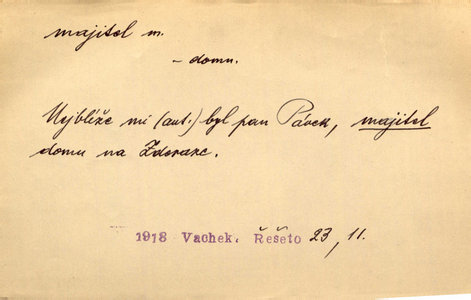 majitel m.
– domu.
Nejblíže mi (aut.) byl pan Pávek, majitel
domu na Zderaze.
1918 Vachek. Řešeto 23, 11.